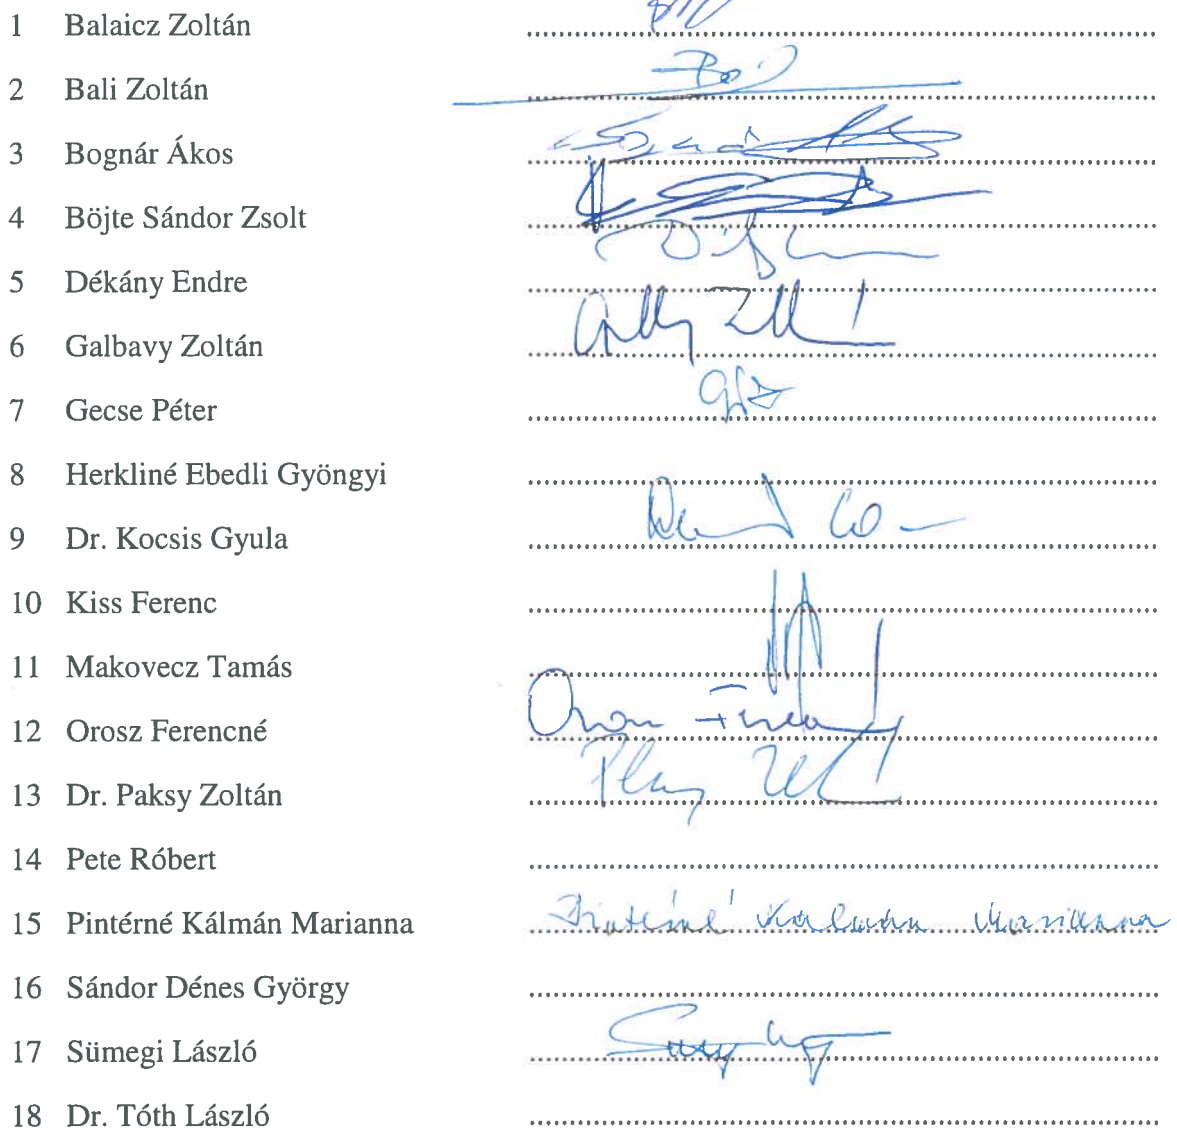 1 Balaicz Zoltán
2 Bali Zoltán
3 Bognár Ákos
4 Böjte Sándor Zsolt
5 Dékány Endre
6 Galbavy Zoltán
7 Gecse Péter
8 Herkliné Ebedli Gyöngyi
9 Dr. Kocsis Gyula
10 Kiss Ferenc
11 Makovecz Tamás
12 Orosz Ferencné
13 Dr. Paksy Zoltán
14 Pete Róbert
15 Pintérné Kálmán Marianna Pintérné Kálmán Marianna
16 Sándor Dénes György
17 Sümegi László
18 Dr. Tóth László